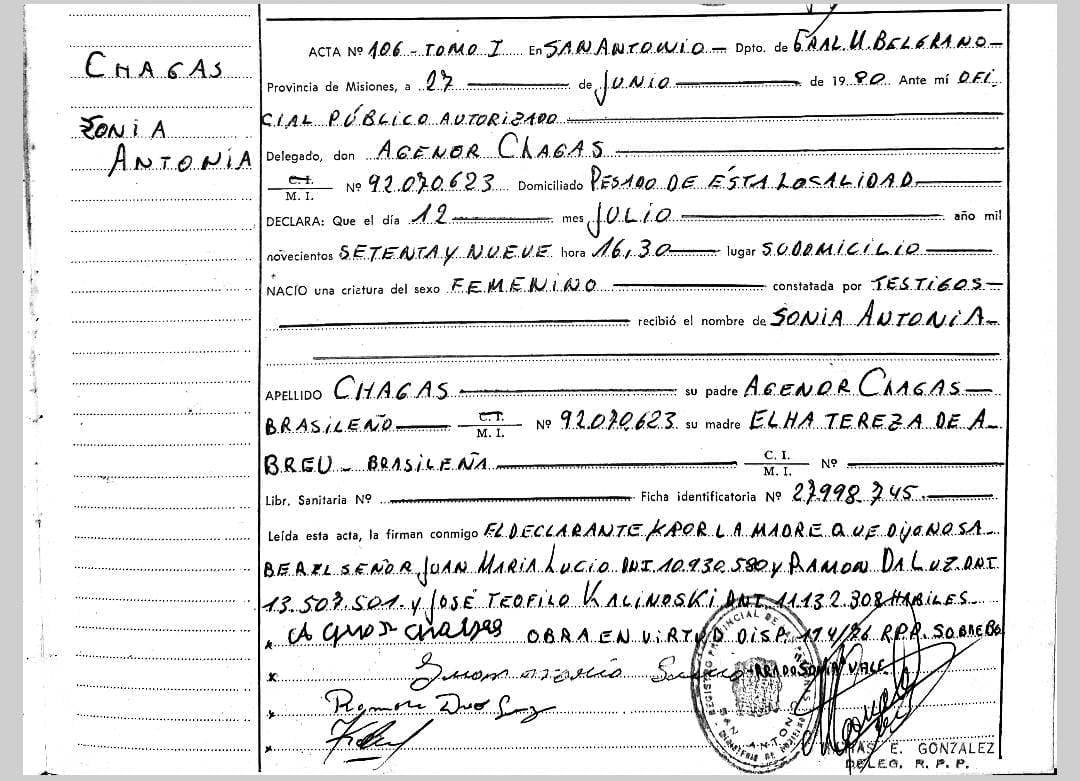 CHAGAS
SONIA
ANTONIA
ACTA Nº 106 - TOMO I En SAN ANTONIO - Dpto. de GRAL. M. BELGRANO -
Provincia de Misiones, a 27 de JUNIO de 1980 Ante mí OFI
CIAL PÚBLICO AUTORIZADO
Delegado, don AGENOR CHAGAS
C.I. M. I. Nº 92.070.623 Domiciliado PESADO DE ÉSTA LOCALIDAD
DECLARA: Que el día 12 mes JULIO año mil
novecientos SETENTA Y NUEVE hora 16,30 lugar SU DOMICILIO
NACIO una criatura del sexo FEMENINO constatada por TESTIGOS -
recibió el nombre de SONIA ANTONIA -
APELLIDO CHAGAS su padre AGENOR CHAGAS -
BRASILEÑO C.I. M. I. Nº 92.070.623 su madre ELHA TEREZA DE A -
BREU - BRASILEÑA C. I. M. I. Nº
Libr. Sanitaria Nº Ficha identificatoria Nº 27.998.745.
Leída esta acta, la firman conmigo EL DECLARANTE Y POR LA MADRE QUE DIJO NO SA -
BER EL SEÑOR JUAN MARIA LUCIO DNI 10.930.580 y RAMON DA LUZ. DNI
13.507.501. y JOSÉ TEOFILO KALINOSKI DNI. 11.132.308 HABILES.
OBRA EN VIRTUD DISP. 174/76 RPP. SOBREBO
RRADO SONIA VALE
REGISTRO PROVINCIAL DE LAS PERSONAS
SAN ANTONIO
E. GONZALEZ
DELEG. R. P. P.